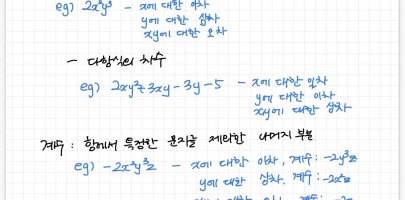 eg) 2x²y³ - x에 대한 이차
y에 대한 삼차
xy에 대한 오차
- 다항식의 차수
eg) 2xy²+3xy-3y-5 - x에 대한 일차
y에 대한 이차
xy에 대한 삼차
계수 : 항에서 특정한 문자를 제외한 나머지 부분
eg) -2x²y³z - x에 대한 이차, 계수: -2y³z
y에 대한 삼차, 계수: -2x²z